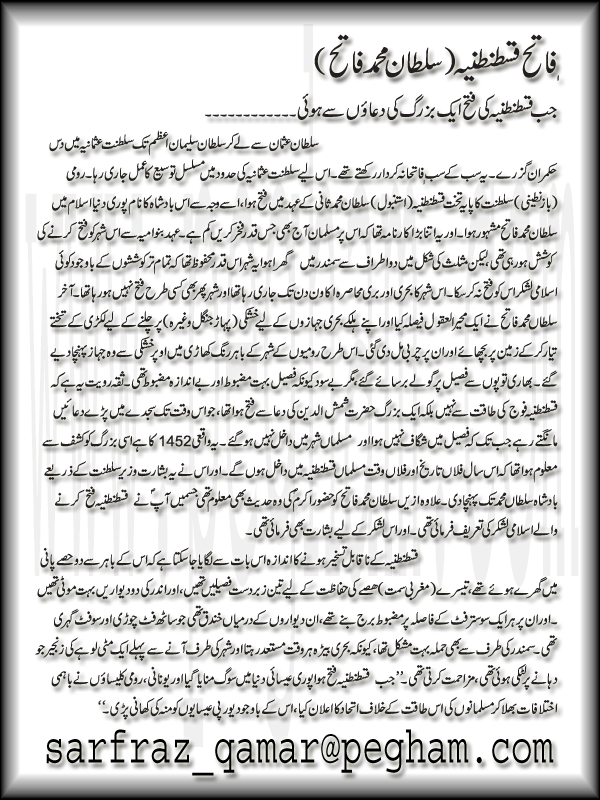 فاتح قسطنطنیہ (سلطان محمد فاتح)
جب قسطنطنیہ کی فتح ایک بزرگ کی دعاؤں سے ہوئی ------------
سلطان عثمان سے لے کر سلطان سلیمان اعظم تک سلطنت عثمانیہ میں دس
حکمران گزرے۔ یہ سب کے سب فاتحانہ کردار رکھتے تھے۔ اس لیے سلطنت عثمانیہ کی حدود میں مسلسل توسیع کا عمل جاری رہا۔ رومی
(بازنطینی) سلطنت کا پایہ تخت قسطنطنیہ (استنبول) سلطان محمد ثانی کے عہد میں فتح ہوا، اسی وجہ سے اس بادشاہ کا نام پوری دنیا اسلام میں
سلطان محمد فاتح مشہور ہوا۔ اور یہ اتنا بڑا کارنامہ تھا کہ اس پر مسلمان آج بھی جس قدر فخر کریں کم ہے۔ عہد بنو امیہ سے اس شہر کو فتح کرنے کی
کوشش ہو رہی تھی، لیکن مثلث کی شکل میں دو اطراف سے سمندر میں گھرا ہوا یہ شہر اس قدر محفوظ تھا کہ تمام تر کوششوں کے باوجود کوئی
اسلامی لشکر اس کو فتح نہ کر سکا۔ اس شہر کا بحری اور بری محاصرہ اکاون دن تک جاری رہا تھا اور شہر پھر بھی کسی طرح فتح نہیں ہو رہا تھا۔ آخر
سلطان محمد فاتح نے ایک محیر العقول فیصلہ کیا اور اپنے ہلکے بحری جہازوں کے لیے خشکی (پہاڑ جنگل وغیرہ) پر چلنے کے لیے لکڑی کے تختے
تیار کر کے زمین پر بچھائے اور ان پر چربی مل دی گئی۔ اس طرح رومیوں کے شہر کے باہر رنگ کھاڑی میں اوپر خشکی سے وہ جہاز پہنچا دیے
گئے۔ بھاری توپوں سے فصیل پر گولے برسائے گئے، مگر بے سود کیونکہ فصیل بہت مضبوط اور بے اندازہ مضبوط تھی۔ ثقہ رویت یہ ہے کہ
قسطنطنیہ فوج کی طاقت سے نہیں بلکہ ایک بزرگ حضرت شمش الدین کی دعا سے فتح ہوا تھا، جو اس وقت تک سجدے میں پڑے دعائیں
مانگتے رہے جب تک کہ فصیل میں شگاف نہیں ہوا اور مسلماں شہر میں داخل نہیں ہو گئے۔ یہ واقعی 1452 کا ہے اسی بزرگ کو کشف سے
معلوم ہوا تھا کہ اس سال فلاں تاریخ اور فلاں وقت مسلماں قسطنطنیہ میں داخل ہوں گے۔ اور اس نے یہ بشارت وزیر سلطنت کے ذریعے
بادشاہ سلطان محمد تک پہنچا دی۔ علاوہ ازیں سلطان محمد فاتح کو حضور اکرم کی وہ حدیث بھی معلوم تھی جسمیں آپ نے قسطنطنیہ فتح کرنے
والے اسلامی لشکر کی تعریف فرمائی تھی۔ اور اس لشکر کے لیے بشارت بھی فرمائی تھی۔
قسطنطنیہ کے ناقابل تسخیر ہونے کا اندازہ اس بات سے لگایا جا سکتا ہے کہ اس کے باہر سے دو حصے پانی
میں گھرے ہوئے تھے، تیسرے (مغربی سمت) حصے کی حفاظت کے لیے تین زبردست فصیلیں تھیں، اور اندر کی دو دیواریں بہت موٹی تھیں
۔ اور ان پر ہر ایک سو ستر فٹ کے فاصلہ پر مضبوط برج بنے تھے، ان دیواروں کے درمیاں خندق تھی جو ساٹھ فٹ چوڑی اور سو فٹ گہری
تھی۔ سمندر کی طرف سے بھی حملہ بہت مشکل تھا، کیونکہ بحری بیڑہ ہر وقت مستعد رہتا اور شہر کی طرف آنے سے پہلے ایک مٹی لوہے کی زنجیر جو
دہانے پر لٹکی ہوئی تھی، مزاحمت کرتی تھی۔ ”جب قسطنطنیہ فتح ہوا پوری عیسائی دنیا میں سوگ منایا گیا اور یونانی، رومی کلیساؤں نے باہمی
اختلافات بھلا کر مسلمانوں کی اس طاقت کے خلاف اتحاد کا اعلان کیا، اس کے باوجود یورپی عیسایوں کو منہ کی کھانی پڑی۔“
sarfraz_qamar@pegham.com